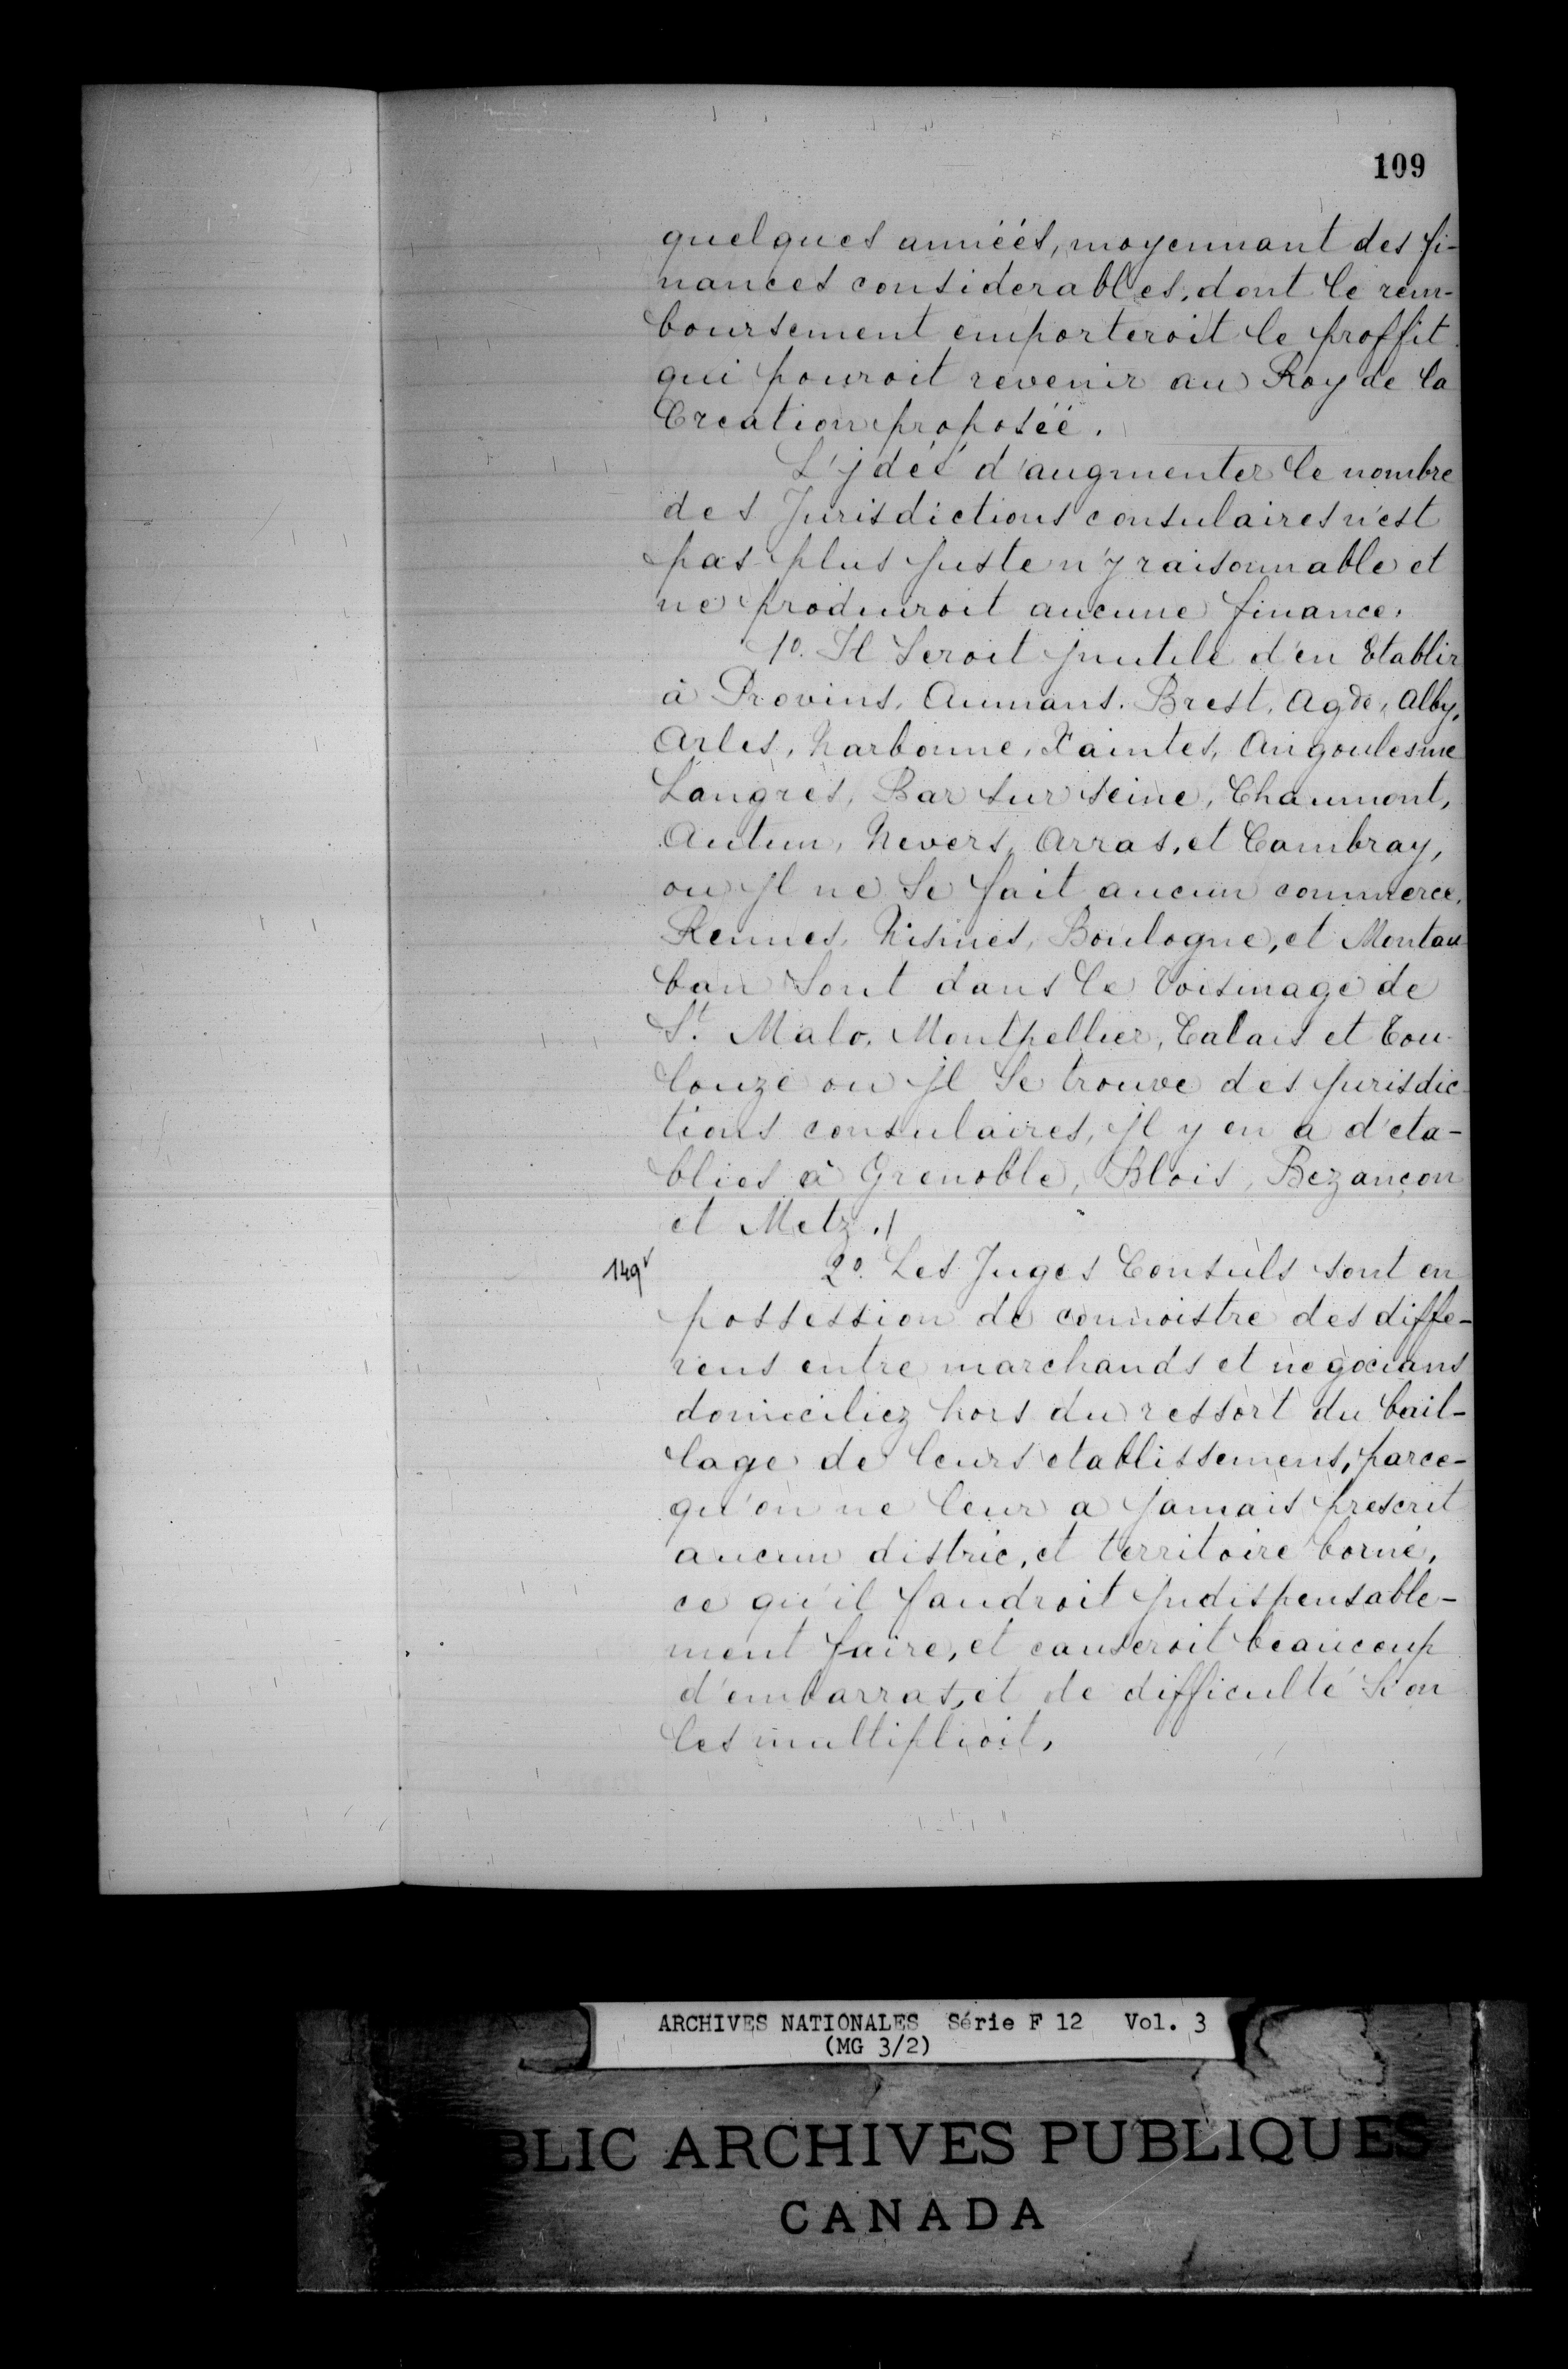 109
quelques annéés, moyennant des fi-
nances considerables, dont le rem-
boursement emporteroit le proffit
qui pouroit revenir au Roy de la
Creation proposéé.
L'jdéé d'augmenter le nombre
des Jurisdictions consulaires n'est
pas plus juste n'y raisonnable et
ne produiroit aucune finance.
1º. Il seroit jnutile d'en Etablir
à Provins, Aumans. Brest, Agde, Alby,
Arles, Narbonne, Xaintes, Angoulesme
Langres, Bar sur seine, Chaumont,
Autun, Nevers, Arras, et Cambray,
ou jl ne se fait aucun commerce.
Rennes, Nismes, Boulogne, et Montau
ban sont dans le Voisinage de
St. Malo, Montpellier, Calais et Tou-
louze ou jl se trouve des jurisdic-
tions consulaires, jl y en a d'eta-
blies à Grenoble, Blois, Bezançon
et Metz ./
149v
2º. Les Juges Consuls sont en
possession de connoistre des diffe-
rens entre marchands et negocians
domiciliez hors du ressort du bail-
lage de leurs etablissemens, parce-
qu'on ne leur a jamais prescrit
aucun distric, et territoire borné,
ce qu'il faudroit jndispensable-
ment faire, et causeroit beaucoup
d'embarras, et de difficulté si on
les multiplioit,
ARCHIVES NATIONALES Série F 12 Vol. 3
(MG 3/2)
BLIC ARCHIVES PUBLIQUES
CANADA